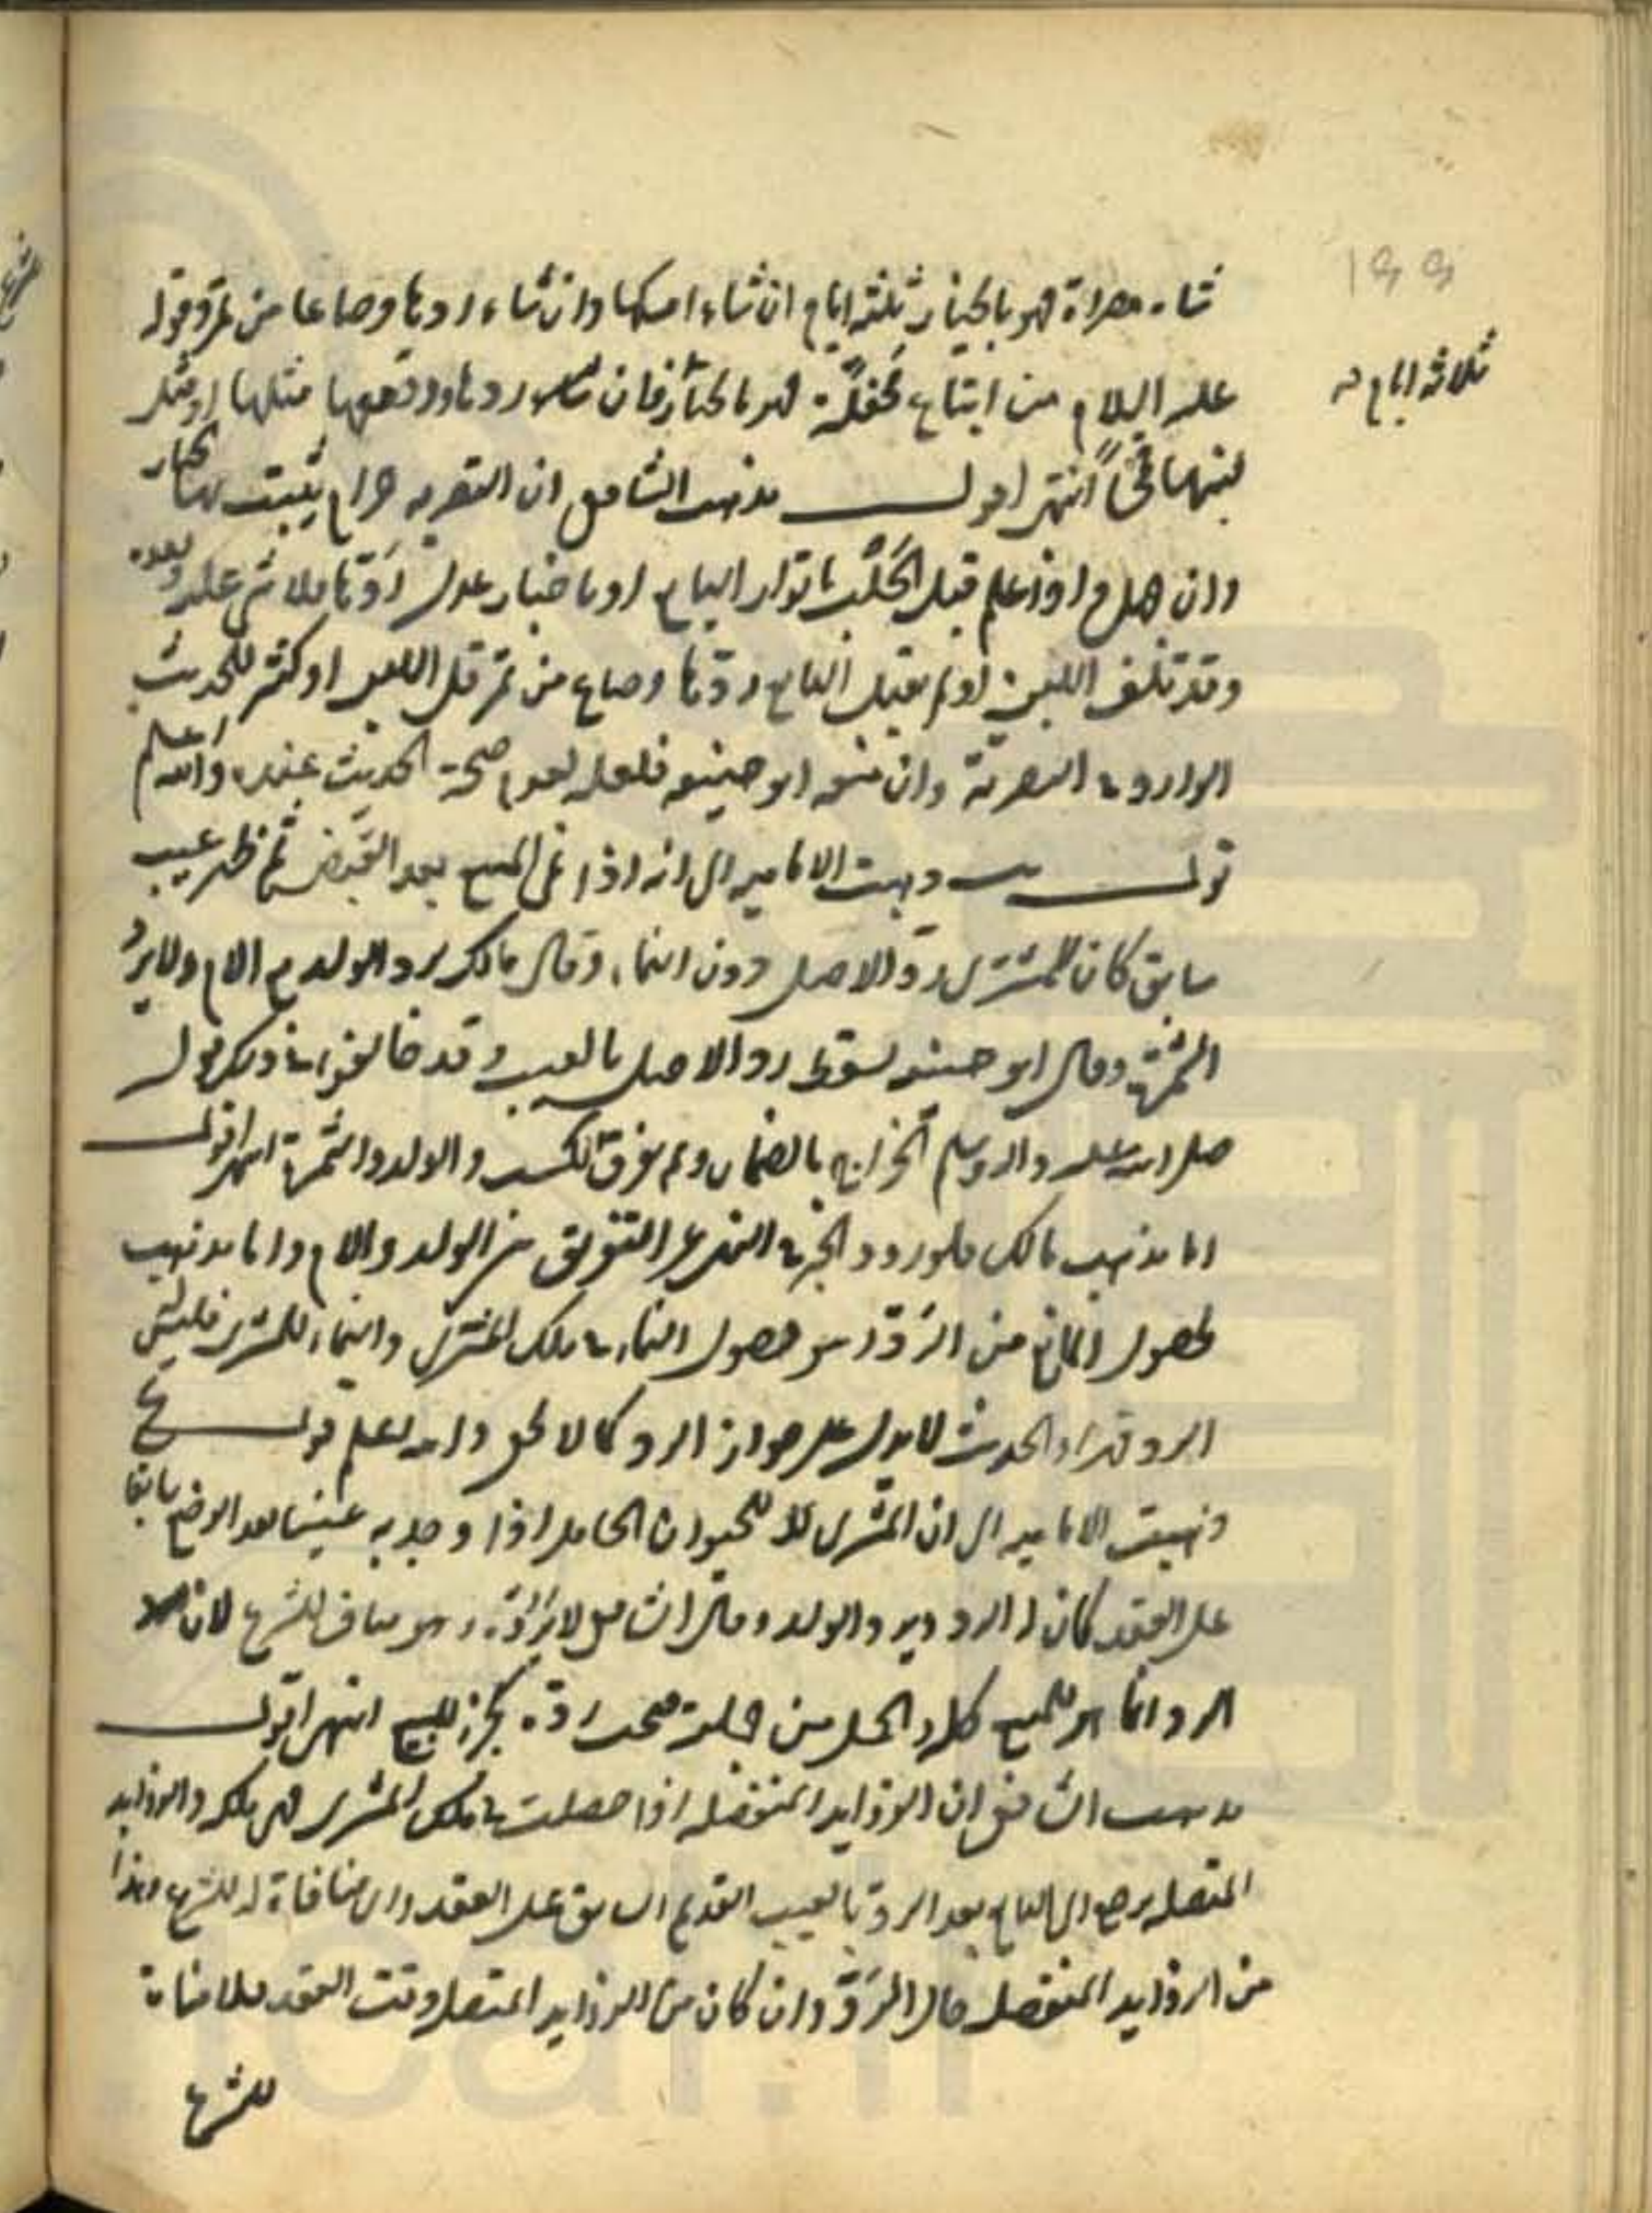 شاة مصراة فهو بالخيار ثلثة ايام ان شاء امسكها وان شاء ردها وصاعا من تمر وقوله
ثلاثة ايام
عليه السلام من ابتاع محفّلة فهو بالخيار فان ردها رد معها مثلها او مثل
لبنها قمحاً انتهى اقول مذهب الشافعي ان التصرية حرام يثبت بها الخيار
وان علم قبل الحَلْب باقرار البايع او باخبار عدل رَدّها ولا شئ عليه وبعده
وقد تلف اللبن او لم يقبل البايع ردّها وصاع من تمر قل اللبن او كثر للحديث
الوارد في المصراة وان منعه ابو حنيفه فلعله لعدم صحة الحديث عنده والله اعلم
قوله ذهبت الاماميه الى انه اذا نمى المبيع بعد القبض ثم ظهر عيب
سابق كان للمشتري ردّ الاصل دون النماء وقال مالك يرد الولد مع الام ولا يرد
الثمرة وقال ابو حنيفه يسقط رد الاصل بالعيب وقد خالفوا في ذلك قول
صلى الله عليه واله وسلم الخراج بالضمان ولم يفرق بين الكسب والولد والثمرة انتهى اقول
اما مذهب مالك فلورود الخبر في النهي عن التفريق بين الولد والام واما مذهب
لحصول المانع من الرَدّ وهو حصول النماء في ملك المشتري والنماء للمشتري فليس
الرد وهذا الحديث لا يدل على جواز الرد كما لا يخفى والله اعلم قوله
ذهبت الاماميه الى ان المشتري للحيوان الحامل اذا وجد به عيبا بعد الوضع سابقا
على العقد كان له الرد ويرد الولد وقال الشافعي لا يردّه وهو مناف للشرع لان
الرد انما هو للمبيع كله والحمل من جملته انتهى اقول
مذهب الشافعي ان الزوايد المنفصله اذا حصلت في ملك المشتري فهى ملكه والزوايد
المتصله يرجع الى البايع بعد الرد بالعيب القديم السابق على العقد واى منافاة له للشرع وهذا
من الزوايد المنفصله حال الرَدّ وان كان من الزوايد المتصله وقت العقد فلا منافاة
للشرع